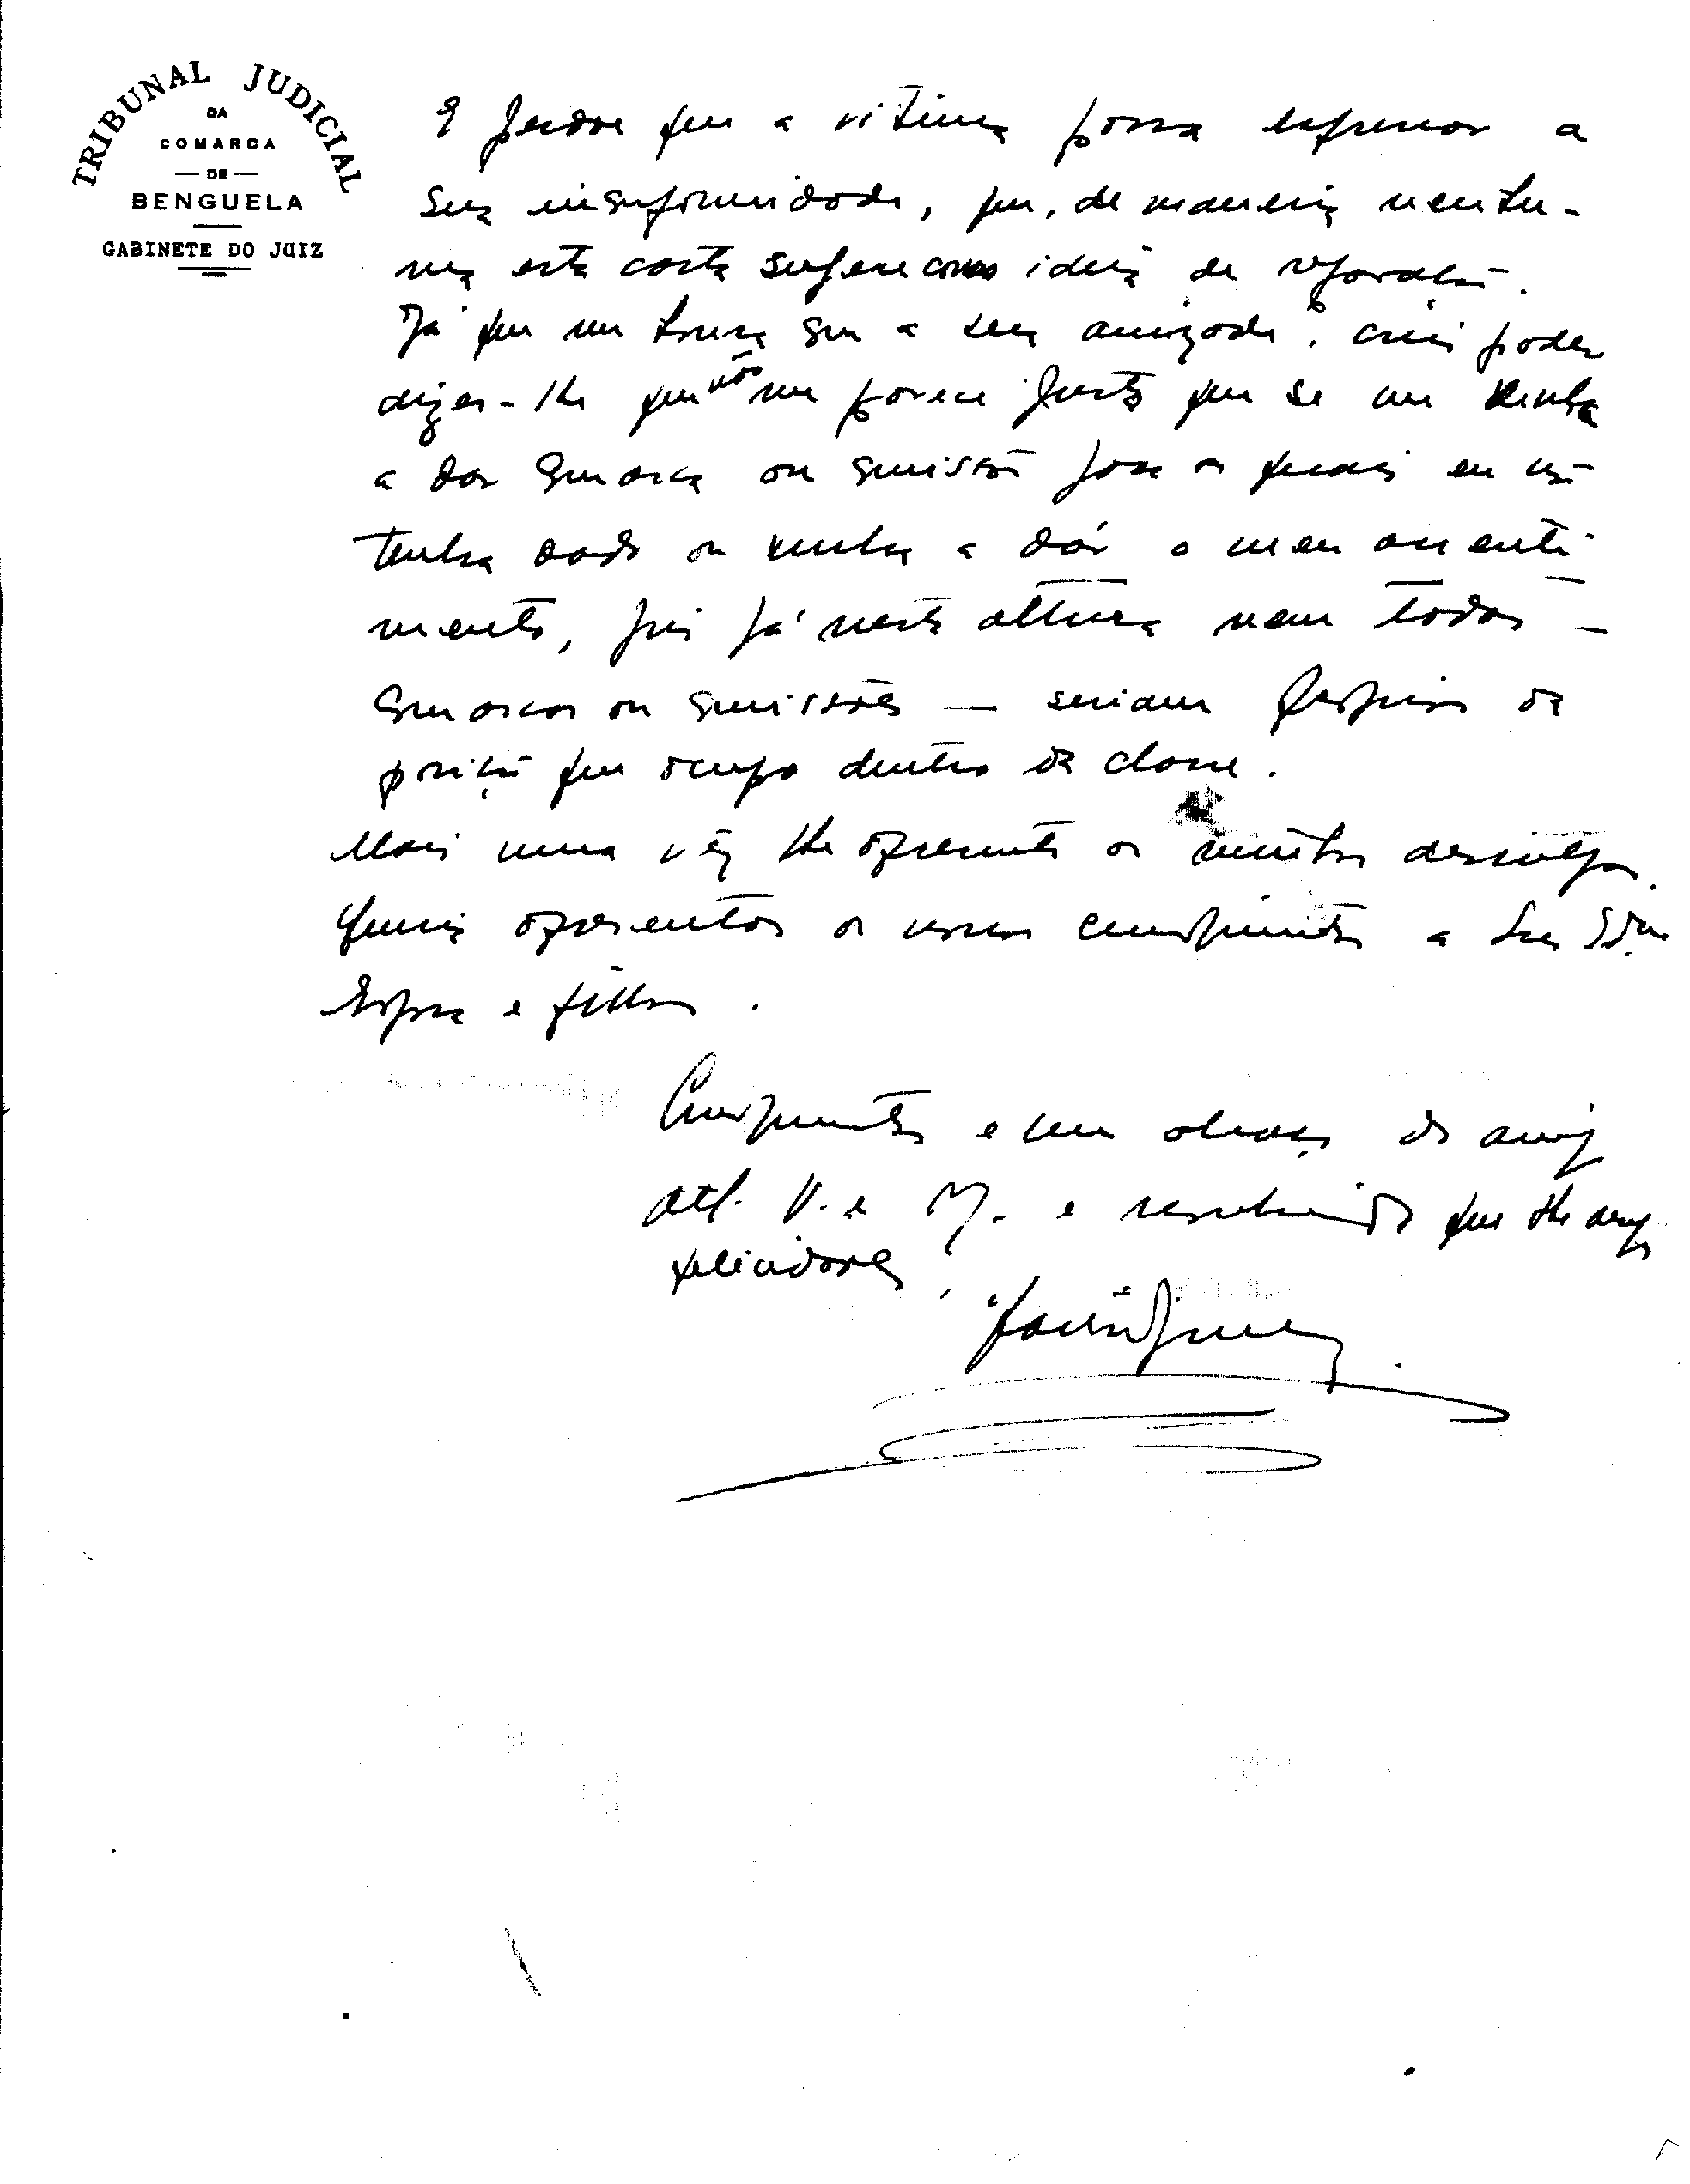 TRIBUNAL JUDICIAL
DA
COMARCA
— DE —
BENGUELA
GABINETE DO JUIZ
E perdoe que a vitima possa expressar a
sua inconformidade, que, de maneira nenhu-
ma esta carta sugere como ideia de reparação.
Já que me honra com a sua amizade, creio poder
dizer-lhe que não me parece justo que se me venha
a dar comarca ou comissão para as quais eu não
tenha dado ou venha a dar o meu assenti-
mento, pois já nesta altura nem todas —
comarcas ou comissões — seriam próprias da
posição que ocupo dentro da classe.
Mais uma vêz lhe apresento as minhas desculpas.
Queira apresentar os nossos cumprimentos a Sua
Esposa e filhos.
Cumprimentos e um abraço do amigo
att. V. e e reconhecido que lhe deseja
felicidades,